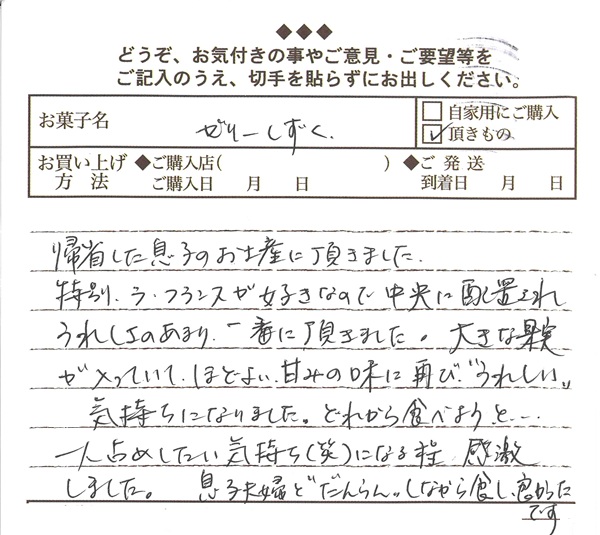 ◆◆◆
どうぞ、お気付きの事やご意見・ご要望等を
ご記入のうえ、切手を貼らずにお出しください。
お菓子名 ぜりーしずく. □ 自家用にご購入
☑ 頂きもの
お買い上げ ◆ご購入店( ) ◆ご発送
方法 ご購入日 月 日 到着日 月 日
帰省した息子のお土産に頂きました.
特別、ラ・フランスが好きなので中央に配置され
うれしさのあまり、一番に頂きました。大きな果実
が入っていて、ほどよい甘みの味に再び、"うれしい"
気持ちになりました。どれから食べようと…
一人占めしたい気持ち(笑)になる程 感激
しました。 息子夫婦と"だんらん"しながら食し、良かった
です